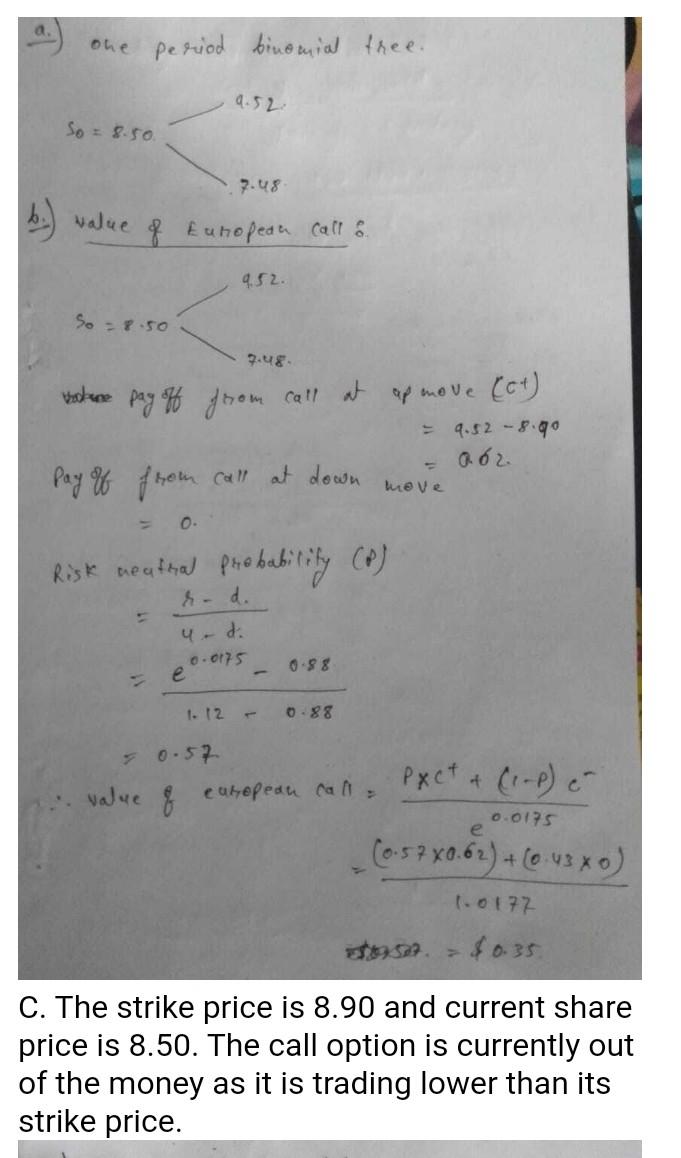 a.) one period binomial tree.
9.52.
So = 8.50.
7.48.
b.) value of European call :
9.52.
So = 8.50
7.48.
pay off from call at up move (c+)
= 9.52 - 8.90
= 0.62.
Pay off from call at down move
= 0.
Risk neutral probability (P)
= r - d.
u - d.
= e^0.0175 - 0.88
1.12 - 0.88
= 0.57
∴ value of european call = P×c+ + (1-P) c-
e^0.0175
= (0.57×0.62) + (0.43×0)
1.0177
= $ 0.35.
C. The strike price is 8.90 and current share
price is 8.50. The call option is currently out
of the money as it is trading lower than its
strike price.